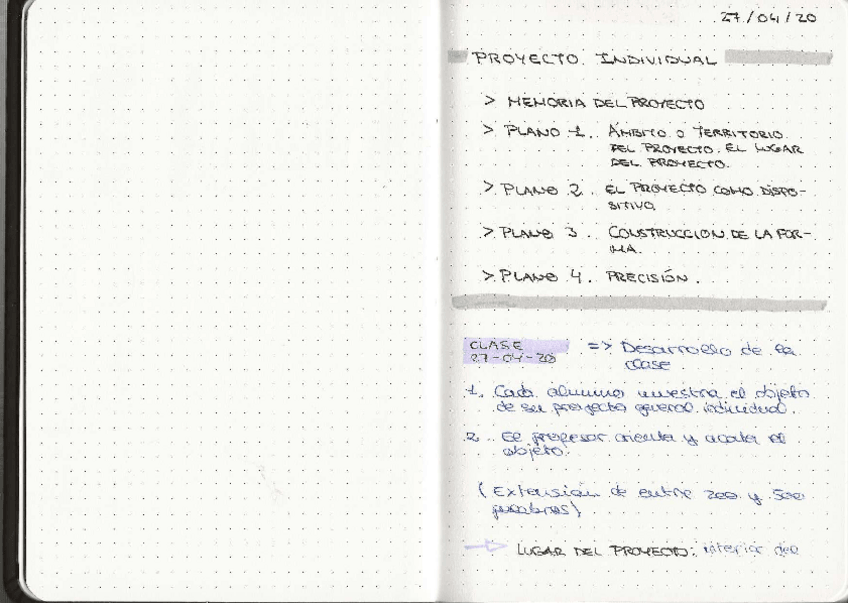 27/04/20
PROYECTO. INDIVIDUAL
> MEMORIA DEL PROYECTO
> PLANO 1. ÁMBITO O TERRITORIO
DEL PROYECTO. EL LUGAR
DEL PROYECTO.
> PLANO 2. EL PROYECTO COMO DISPO-
SITIVO
> PLANO 3. CONSTRUCCION DE LA FOR-
MA.
> PLANO 4. PRECISIÓN.
CLASE => Desarrollo de la
27-04-20 clase
1. Cada alumno muestra el objeto
de su proyecto general individual.
2. El profesor orienta y acota el
objeto.
(Extensión de entre 200 y 500
palabras)
LUGAR DEL PROYECTO: interior del